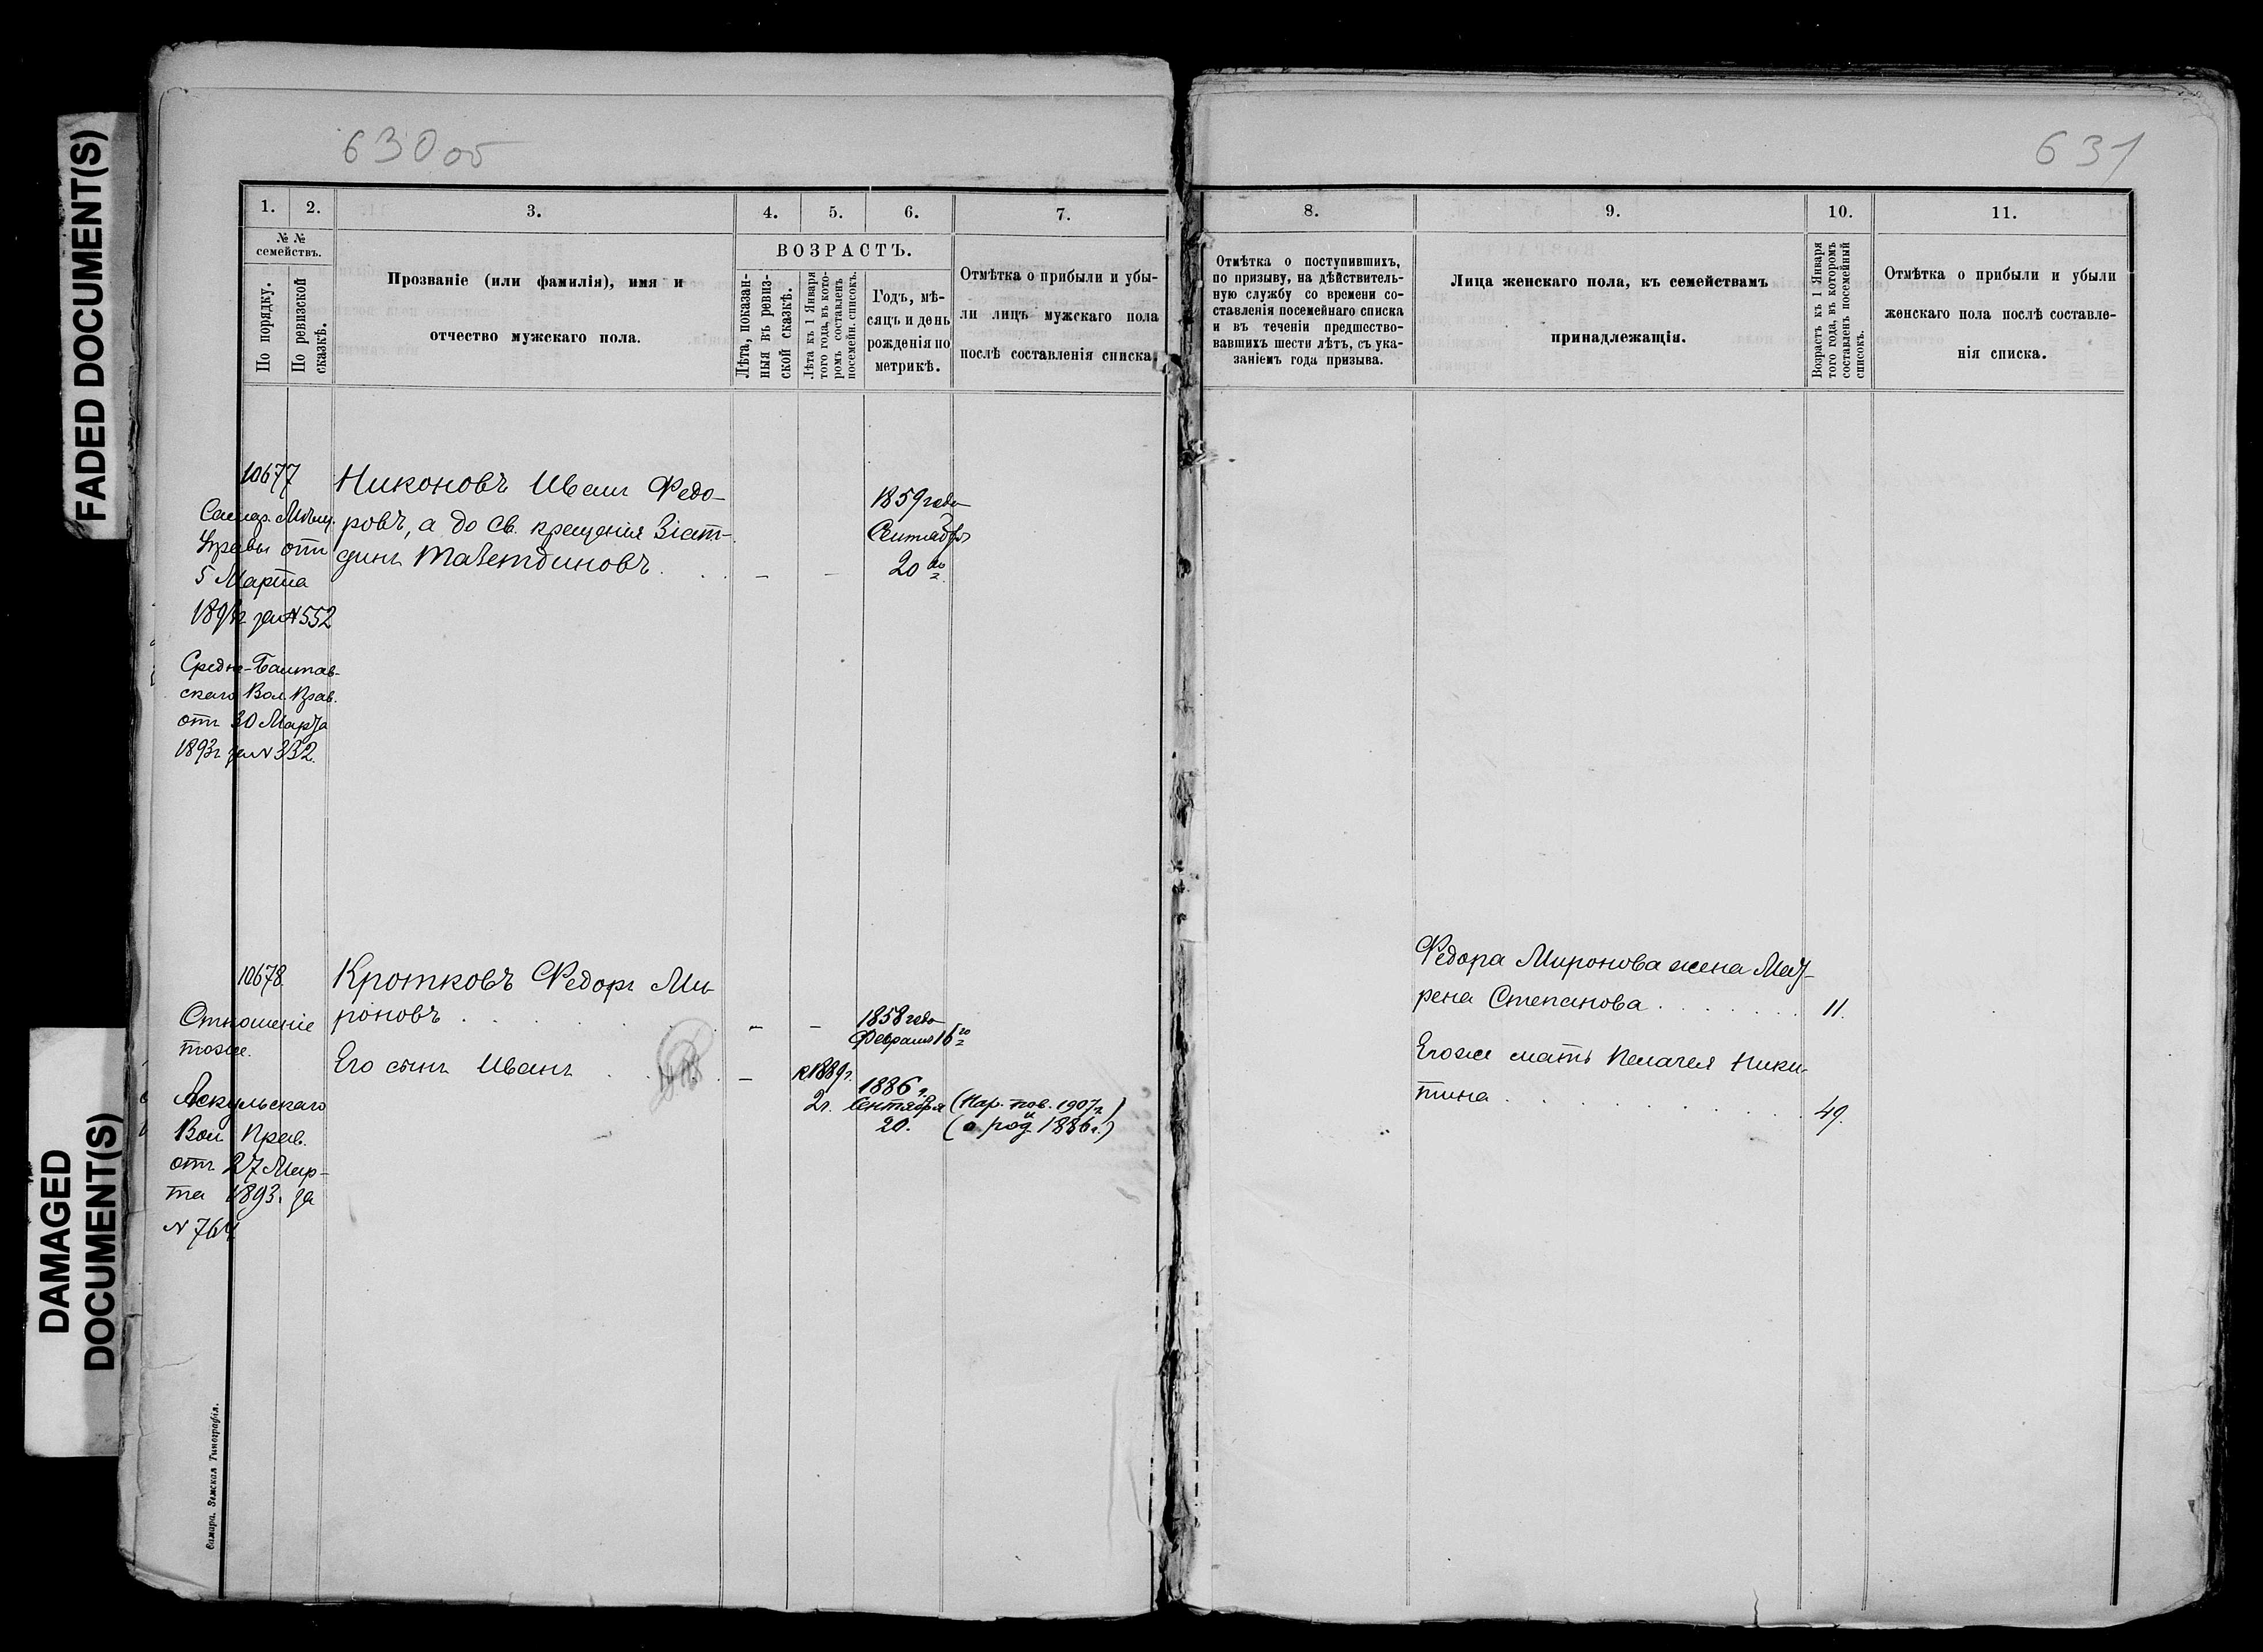 FADED DOCUMENT(S)
DAMAGED
DOCUMENT(S)
630об
1.
2.
3.
4.
5.
6.
7.
№ №
семействъ.
По порядку.
По ревизской
сказкѣ.
Прозваніе (или фамилія), имя и
отчество мужскаго пола.
ВОЗРАСТЪ.
Лѣта, показан-
ныя въ ревиз-
ской сказкѣ.
Лѣта къ 1 Января
того года, въ кото-
ромъ составленъ
посемейн. списокъ.
Годъ, мѣ-
сяцъ и день
рожденія по
метрикѣ.
Отмѣтка о прибыли и убы-
ли лицъ мужскаго пола
послѣ составленія списка.
10677
Самар. Мѣщ.
Управы отъ
5 Марта
за № 552
Средне-
скаго Вол. Прав.
отъ 30 Марта
1893г. за № 332.
Никоновъ Иванъ Федо-
ровъ, а до св. крещенія
динъ
1859 года
Сентября
20 го
10678.
Отношеніе
тоже.
Аскульскаго
Вол. Прав.
отъ 27 Мар-
та 1893. за
№ 764
Кротковъ Федоръ Ми-
роновъ
1858 года
Февраля 16 го
Его сынъ Иванъ
к 1889г.
2г.
1886 г.
Сентября
20.
(Пар. пов. 1907г.)
(о род. 1886г.)
Самара. Земская Типографія.
631
8.
9.
10.
11.
Отмѣтка о поступившихъ,
по призыву, на дѣйствитель-
ную службу со времени со-
ставленія посемейнаго списка
и въ теченіи предшество-
вавшихъ шести лѣтъ, съ ука-
заніемъ года призыва.
Лица женскаго пола, къ семействамъ
принадлежащія.
Возрастъ къ 1 Января
того года, въ которомъ
составленъ посемейный
списокъ.
Отмѣтка о прибыли и убыли
женскаго пола послѣ составле-
нія списка.
Федора Миронова жена Мат-
рена Степанова
11.
Его же мать Пелагея Ники-
тина
49.